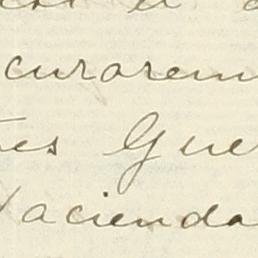 curarem
es Gue
acienda